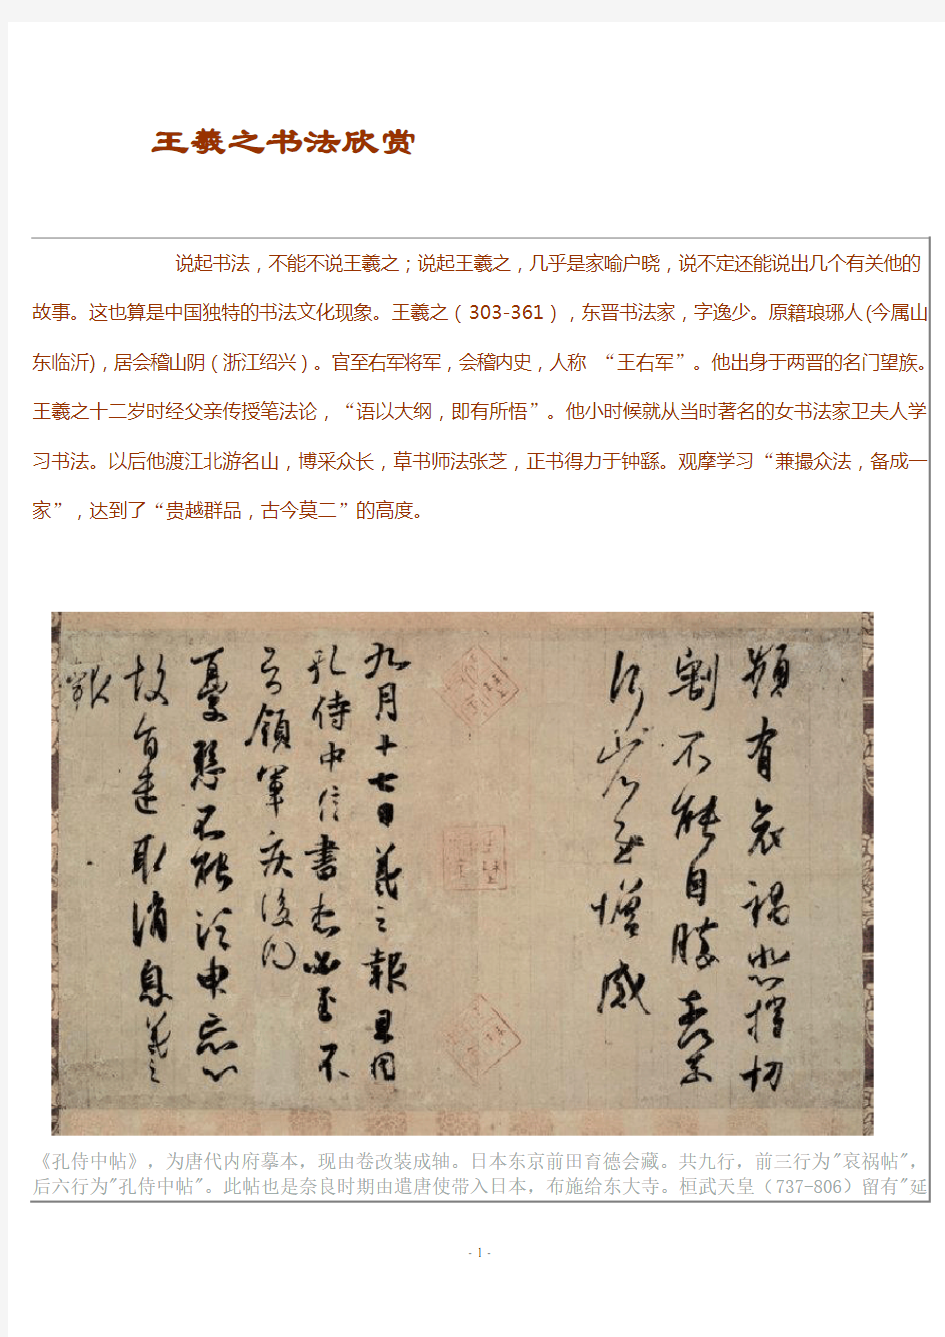 王羲之书法欣赏
说起书法，不能不说王羲之；说起王羲之，几乎是家喻户晓，说不定还能说出几个有关他的
故事。这也算是中国独特的书法文化现象。王羲之（303-361），东晋书法家，字逸少。原籍琅琊人(今属山
东临沂)，居会稽山阴（浙江绍兴）。官至右军将军，会稽内史，人称 “王右军”。他出身于两晋的名门望族。
王羲之十二岁时经父亲传授笔法论，“语以大纲，即有所悟”。他小时候就从当时著名的女书法家卫夫人学
习书法。以后他渡江北游名山，博采众长，草书师法张芝，正书得力于钟繇。观摩学习“兼撮众法，备成一
家”，达到了“贵越群品，古今莫二”的高度。
頻有哀禍悲摧切
割不能自勝奈何奈
何省慰增感
九月十七日羲之報且因
孔侍中信書想必至不
知領軍疾後問
憂懸不能須臾忘心
故旨遣取消息羲之
報
《孔侍中帖》，为唐代内府摹本，现由卷改装成轴。日本东京前田育德会藏。共九行，前三行为"哀祸帖"，
后六行为"孔侍中帖"。此帖也是奈良时期由遣唐使带入日本，布施给东大寺。桓武天皇（737-806）留有"延
- 1 -